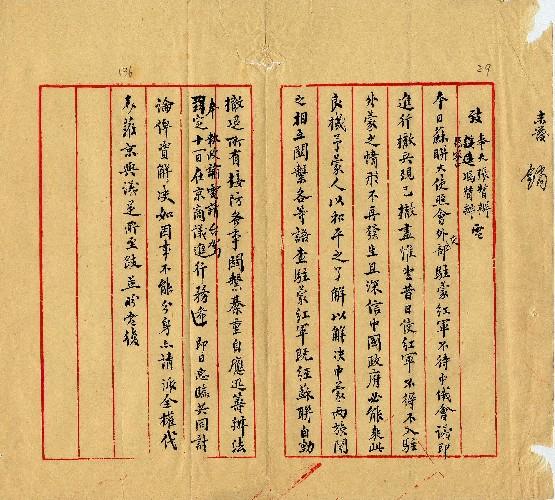 136
29
未發
致 奉天張督辦 馮督辦 電
今日蘇聯大使照會外交部駐蒙紅軍不待中俄會議即
進行撤兵現已撤盡惟望昔日使紅軍不得不入駐
外蒙之情形不再發生且深信中國政府必能乘此
良機予蒙人以和平之了解以解決中蒙兩族間
之相互關繫各等語查駐蒙紅軍既經蘇聯自動
撤退所有接防各事關繫綦重自應迅籌辦法
奉 執政諭電請台駕
擇定十一日在京商議進行務希即日惠臨共同討
論俾資解決如因事不能分身亦請派全權代
表蒞京與議是所至跂並盼電復